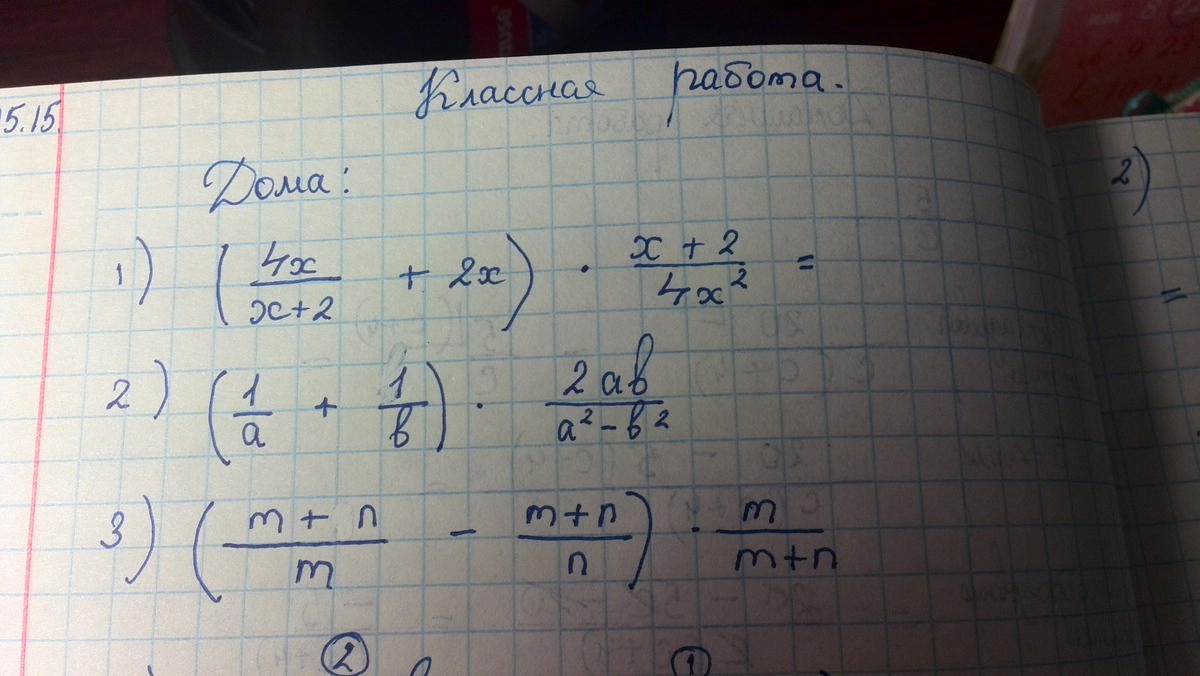 5.15.
Классная работа.
Дома:
1) (4x/(x+2) + 2x) · (x+2)/(4x²) =
2) (1/a + 1/b) · 2ab/(a²-b²)
3) ((m+n)/m - (m+n)/n) · m/(m+n)
② ①
2)
=